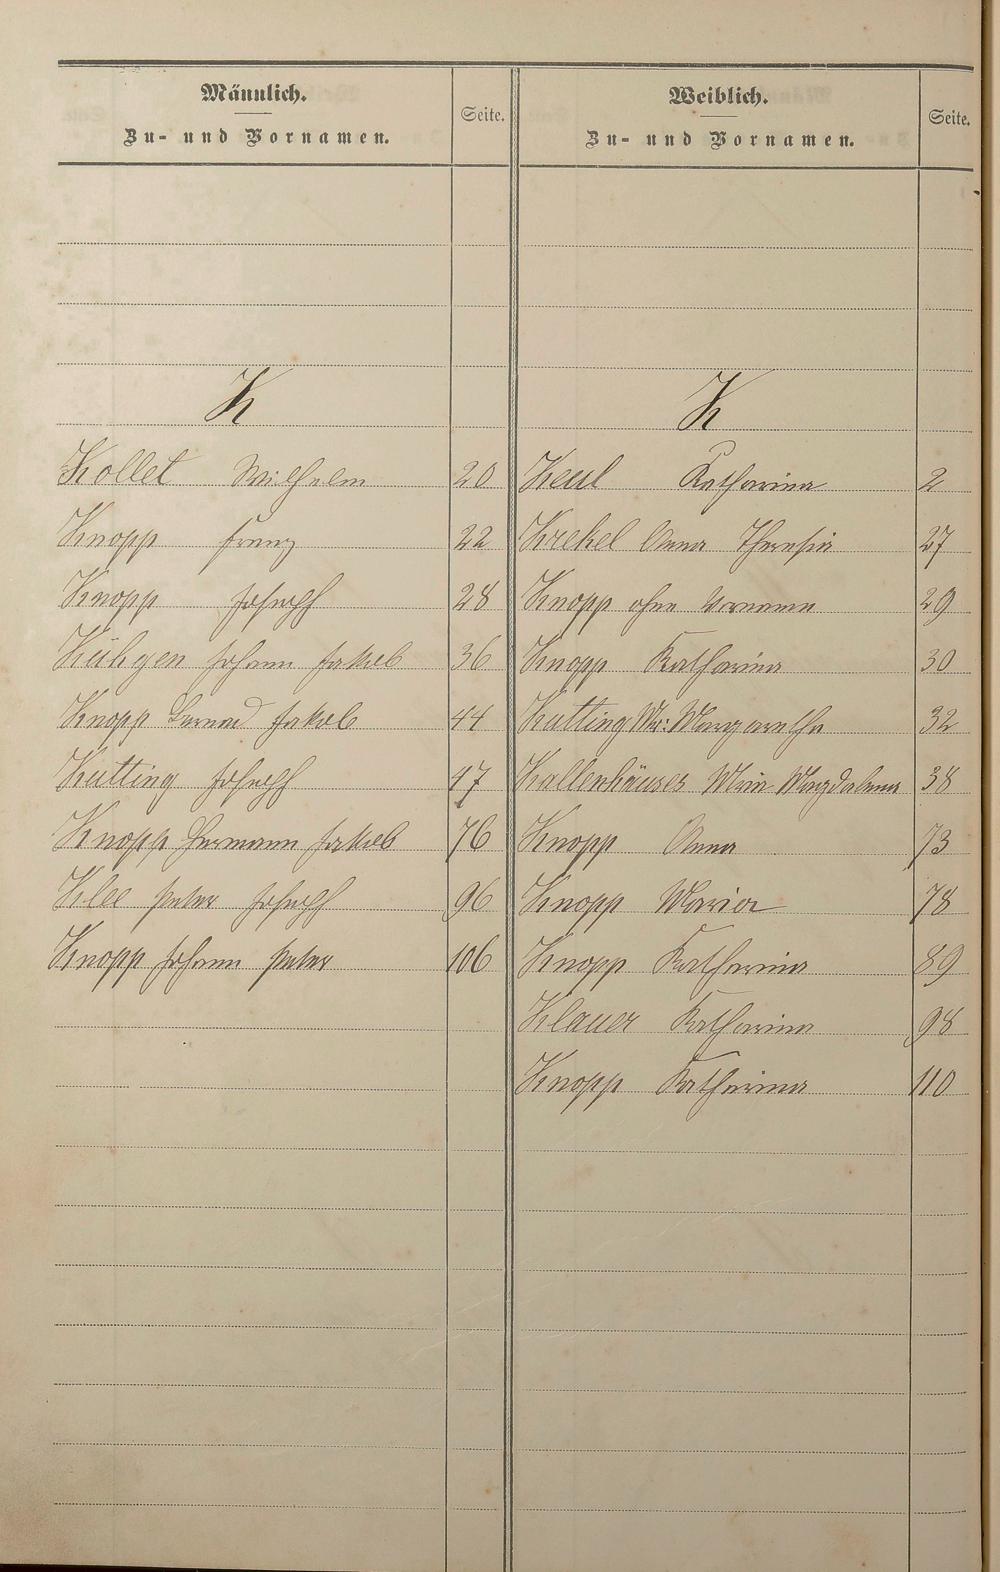 Männlich.
Zu- und Vornamen.
Seite.
K
Kollet Wilhelm 20
Knopp Franz 22
Knopp Joseph 28
Kühgen Johann Jakob 36
Knopp Bernard Jakob 44
Kutting Joseph 47
Knopp Hermann Jakob 76
Klee Peter Joseph 96
Knopp Johann Peter 106
Weiblich.
Zu- und Vornamen.
Seite.
K
Keul Katharina 2
Krekel Anna Theresia 27
Knopp ohne Vorname 29
Knopp Katharina 30
Kutting Mr: Margaretha 32
Kallenhäuser Maria Magdalena 38
Knopp Anna 73
Knopp Maria 78
Knopp Katharina 89
Klauer Katharina 98
Knopp Katharina 110